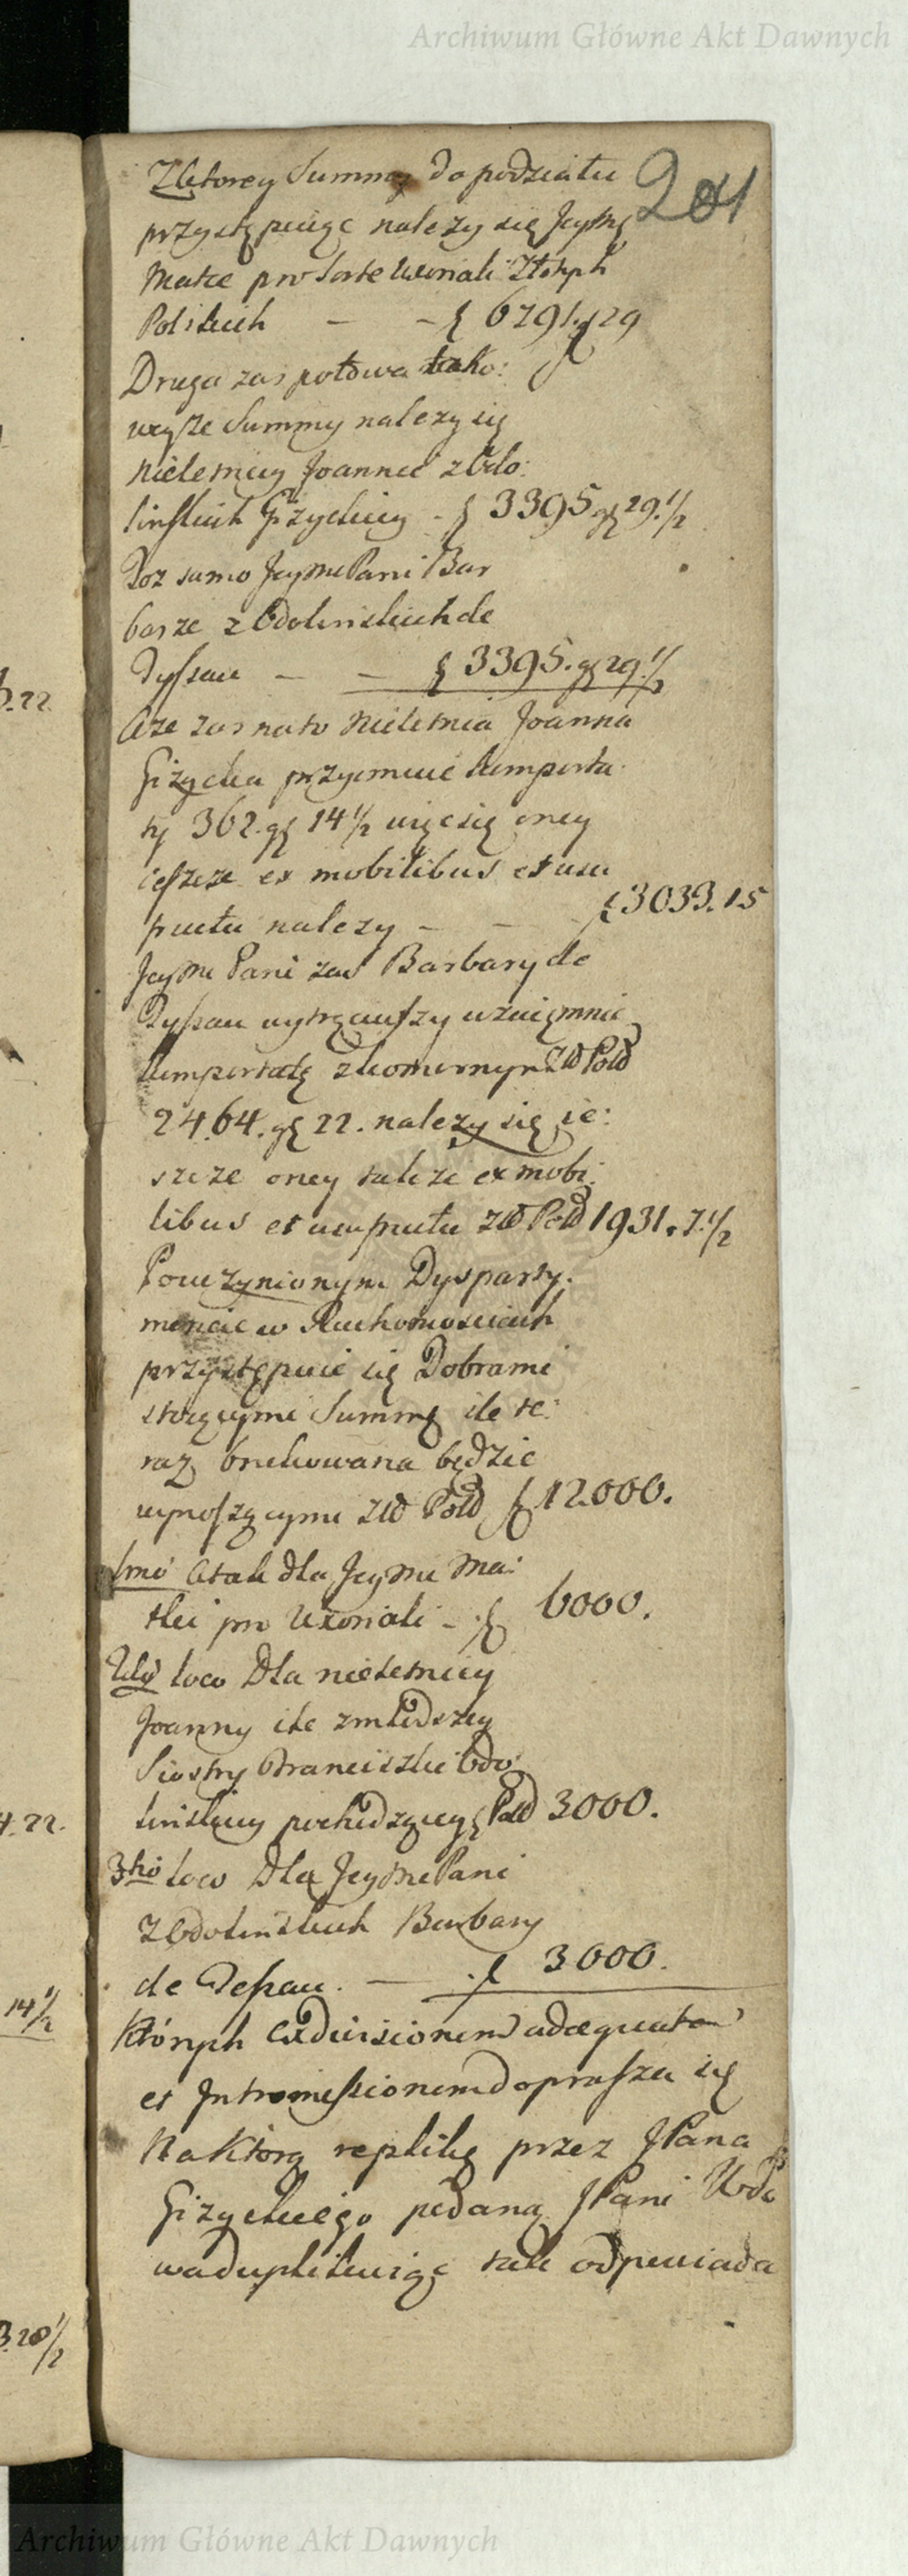 Archiwum Główne Akt Dawnych
Zktorey Summy do podziału
201
przystępuiąc nalezy się Jeymę
Matce pro sorte uxoriali Złotych
Polskich — — f 6791. gr 29
Druga zas połowa tako:
wey sze Summy nalezy się
Nieletniey Joannie zBdo:
linskich Giżyckiey - f 3395 gr 29.½
Toz samo Jeyme Pani Bar
barze zBdolinskich de
Dyssau — — f 3395. gr 29½
Aze zas na to Nieletnia Joanna
Giżycka przyimuie komporta
ty 362. gr 14½ więc się oney
ieszcze ex mobilibus et usu
fructu nalezy — — f 3033. 15
Jeyme Pani zas Barbary de
Dyssau wytrąciwszy wzaięmnie
komportatę zkomornym Zło Pold
2464. gr 22. nalezy się ie:
szcze oney takze ex mobi:
libus et usufructu Zło Pold 1931. 7.½
Po uczynionym Dysparty:
mencie w Ruchomosciach
przystępuie się Dobrami
stoiącymi Summę ile te:
raz brukowana będzie
wynoszącymi Zło Pold f 12000.
1mo Atak dla Jeyme Ma:
tki pro Uxoriali - f 6000.
2do loco Dla nieletniey
Joanny ile zmłodszey
Siostry Franciszki Bdo:
linskiey pochodzącey f Pold 3000.
3tio loco Dla Jeyme Pani
zBdolinskich Barbary
de Dessau. — f 3000.
Których exdivisionem adaequatam
et Intromissionem doprasza się
Na Którą replikę przez JPana
Giżyckiego podaną JPani Wdo
wa duplikuiąc tak odpowiada
22
4. 22.
14½
3. 20½
Archiwum Główne Akt Dawnych